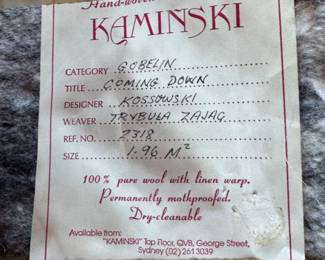 Hand-woven
KAMINSKI
CATEGORY GOBELIN
TITLE COMING DOWN
DESIGNER KOSSOWSKI
WEAVER TRYBULA ZAJAG
REF. NO. 2318
SIZE 1.96 M²
100% pure wool with linen warp.
Permanently mothproofed.
Dry-cleanable
Available from:
"KAMINSKI" Top Floor, QVB, George Street,
Sydney (02) 2613039